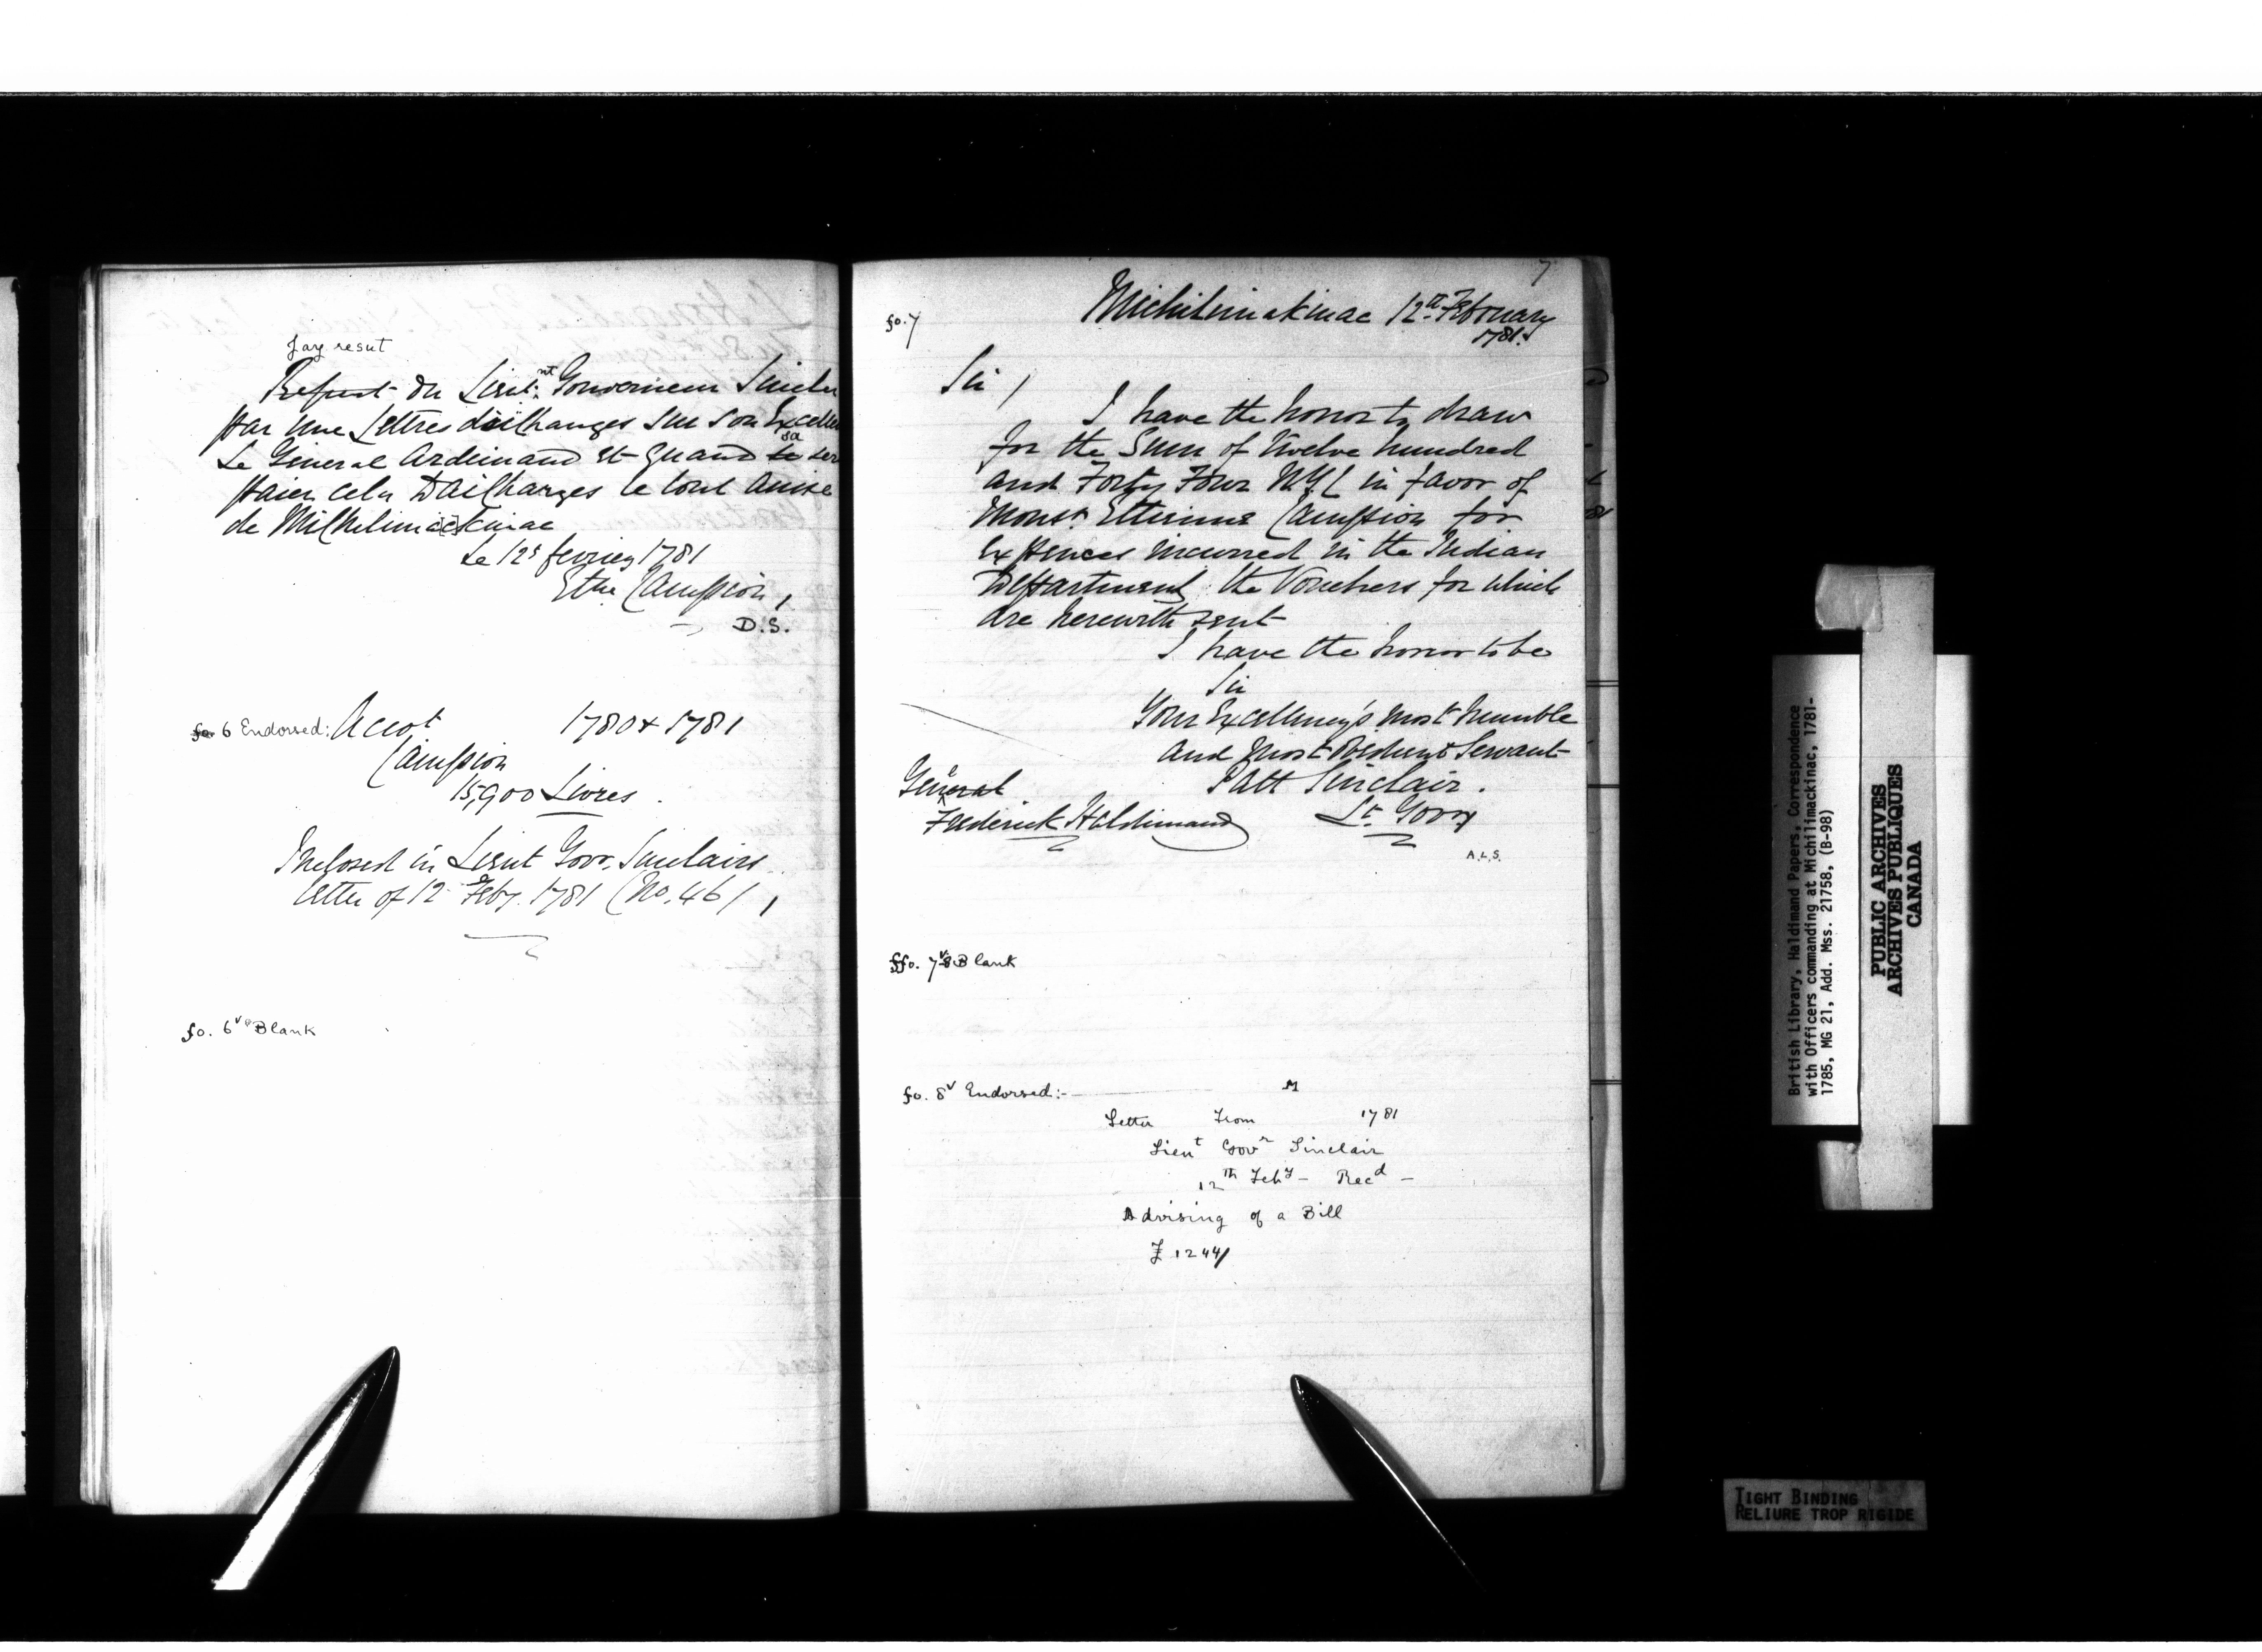 Jay resut
Refust du Lieut:nt Gouverneur Sincler
par une Lettres dailhanges sur son Excellen
Le General Ardeimand et quand sa
paier cela Dailharges le tout Anise
de Milhelimackinac
Le 12s fevriey 1781
Etne Campion,
D.S.
fo. 6 Endorsed: Accot 1780 & 1781
Campion
15,900 Livres.
Inclosed in Lieut Govr. Sinclairs
letter of 12 Feby. 1781 (No. 46),
fo. 6v Blank
7
fo. 7
Michilimakinac 12th February
1781.
Sir,
I have the honor to draw
for the Sum of Twelve hundred
and Forty Four N.Y.C in favor of
Monsr. Ettienne Campion for
Expences incurred in the Indian
Department the Vouchers for which
are herewith sent
I have the honor to be
Sir
Your Excellency's most humble
and most Obedient Servant
Patt Sinclair.
General
Frederick Haldimand
Lt. Govr
A.L.S.
ffo. 7v-8 Blank
fo. 8v Endorsed:- M
Letter From 1781
Lieut Govr Sinclair
12th Feby - Recd -
Advising of a Bill
£ 1244/
British Library, Haldimand Papers, Correspondence
with Officers commanding at Michilimackinac, 1781-
1785, MG 21, Add. Mss. 21758, (B-98)
PUBLIC ARCHIVES
ARCHIVES PUBLIQUES
CANADA
TIGHT BINDING
RELIURE TROP RIGIDE